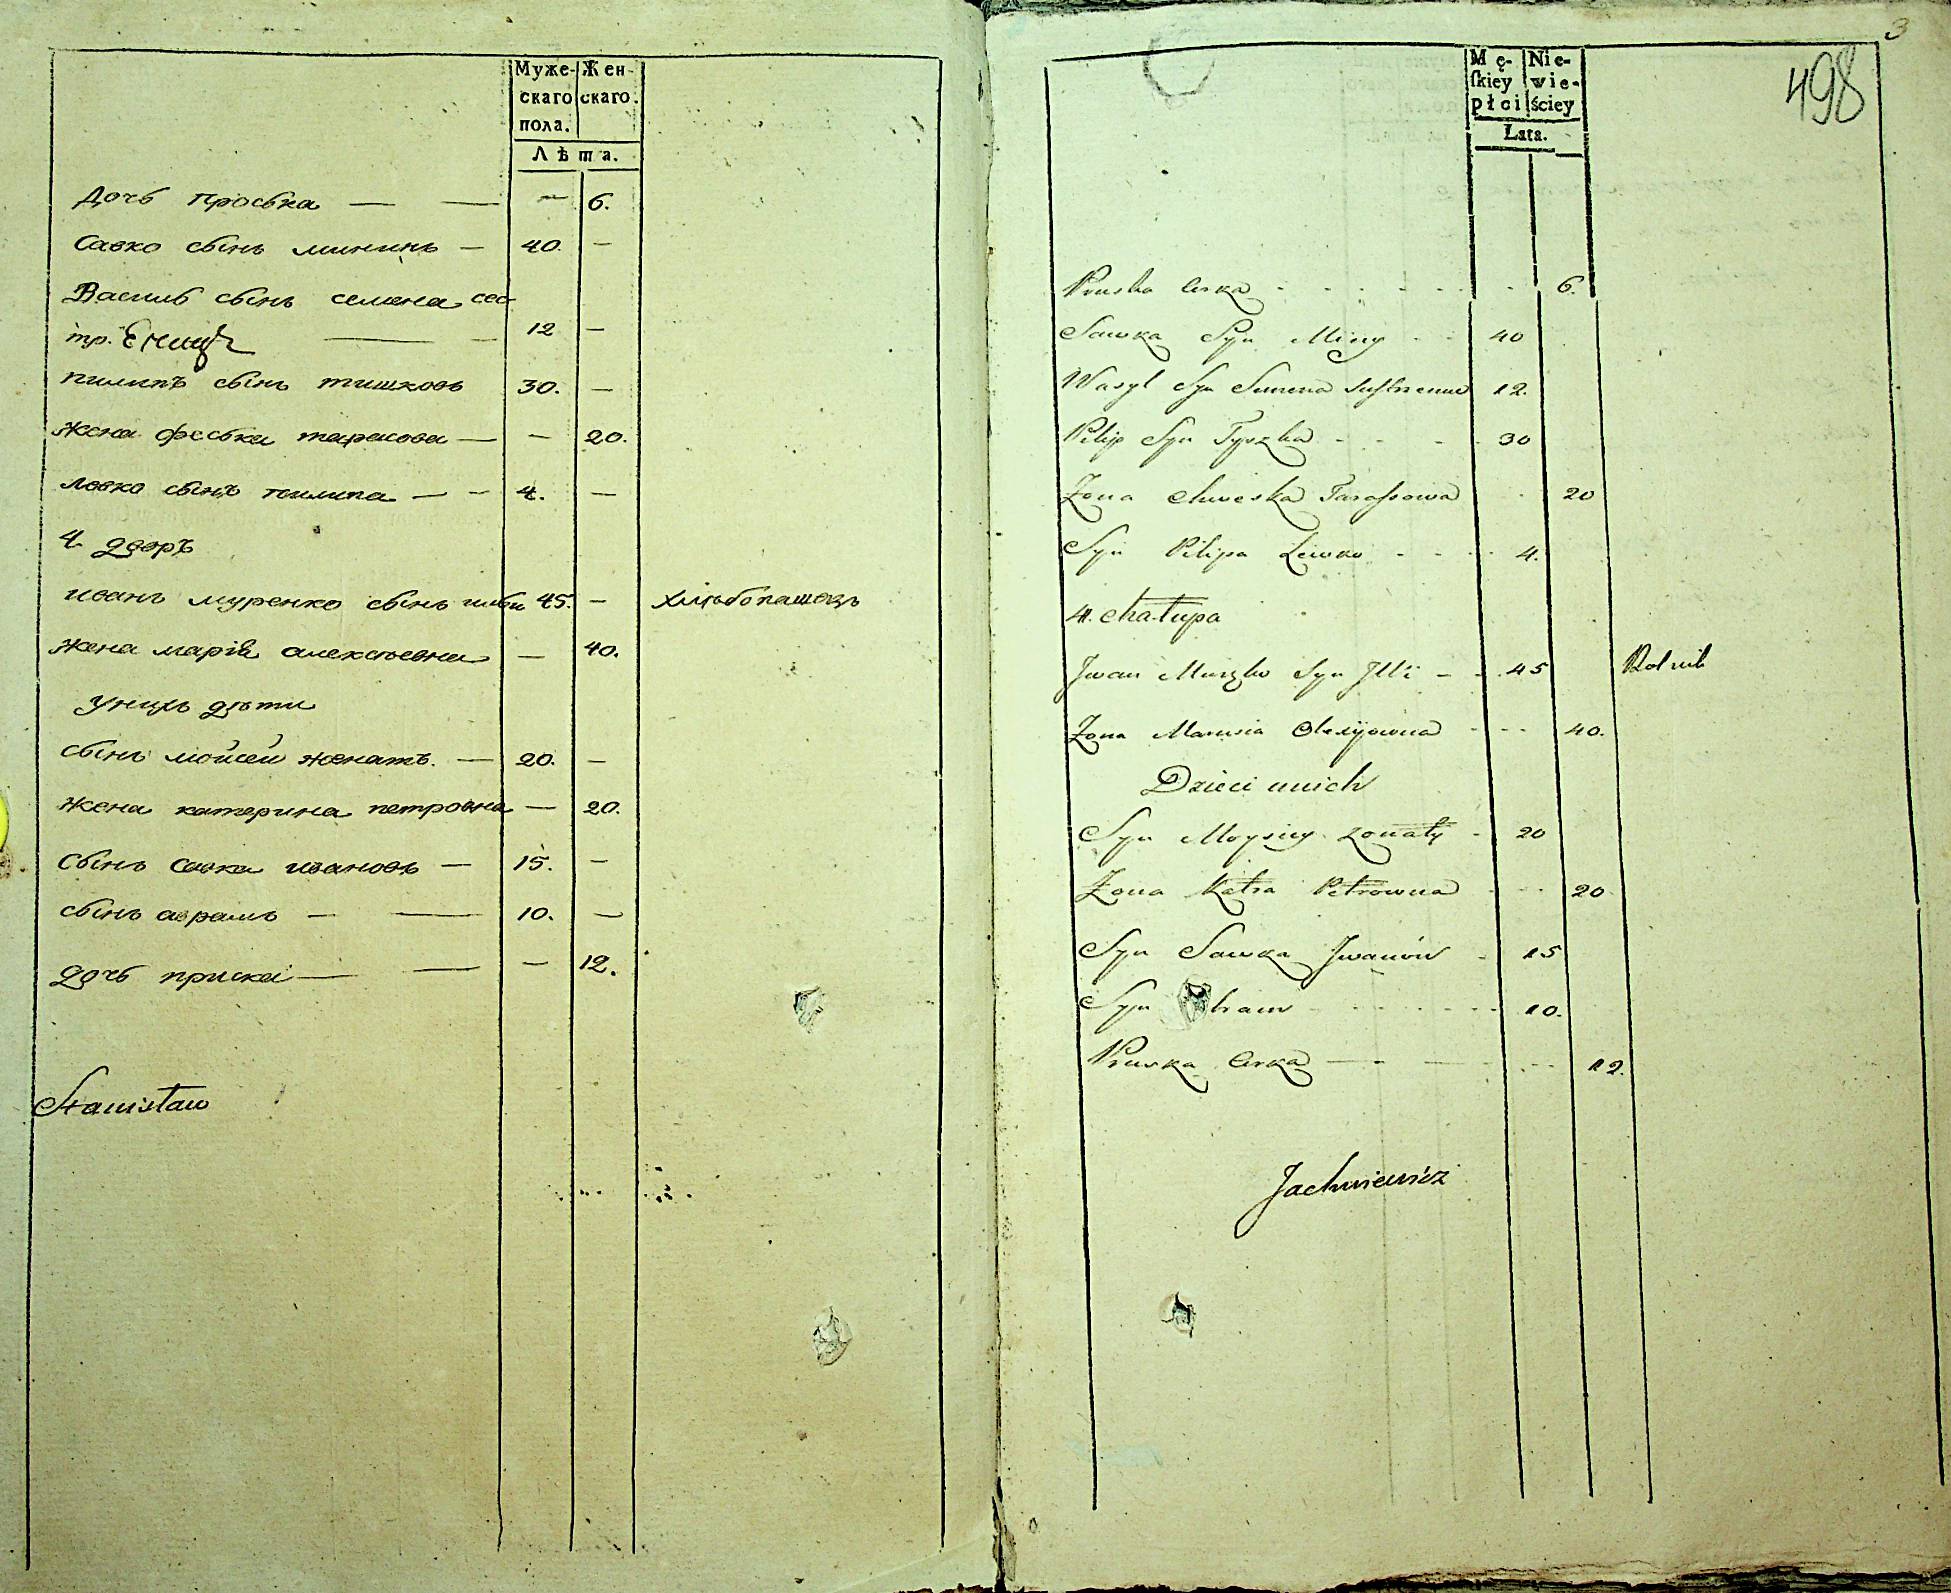 Муже- Жен-
скаго скаго.
пола.
Лѣта.
Дочь проська — — — 6.
Савко сынъ мининъ — 40. —
Василь сынъ семена сес-
тр. 12 —
пилипъ сынъ тишковъ 30. —
жена феська тарасова — — 20.
левко сынъ пилипа — — 4. —
4 дворъ
иванъ муренко сынъ 45. — хлѣбопашецъ
жена марія алексѣевна — 40.
У нихъ дѣти
сынъ мойсей женатъ. — 20. —
жена катерина петровна — 20.
Сынъ савка ивановъ — 15. —
сынъ аврамъ — — 10. —
дочь приска — — — 12.
Stanisław
3
498
Mę- Nie-
ſkiey wie-
płci ściey
Lata.
Pruska Corka 6.
Sawka Syn Miny 40
Wasyl Syn Semena 12.
Pilip Syn Tyszka 30
Żona Chweska Tarassowa 20
Syn Pilipa Lewko 4.
4. Chałupa
Jwan Syn Jlli 45 Rolnik
Żona Marusia Olexijowna 40.
Dzieci unich
Syn Moysiey żonaty 20
Żona Katra Petrowna 20
Syn Sawka Jwanów 15
Syn bram 10.
Pruska Corka 12.
Jachniewicz